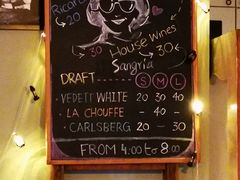 Ricard
20
30
House Wines
Sangria
30
DRAFT S M L
• VEDETT WHITE 20 30 40
• LA CHOUFFE - 40 -
• CARLSBERG 20 - 30
FROM 4:00 to 8:00